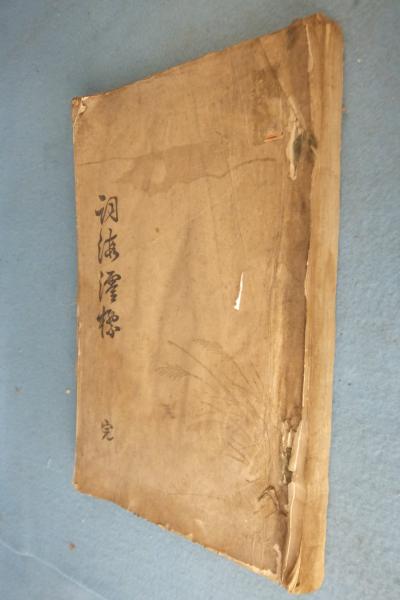 詞海澪標
完